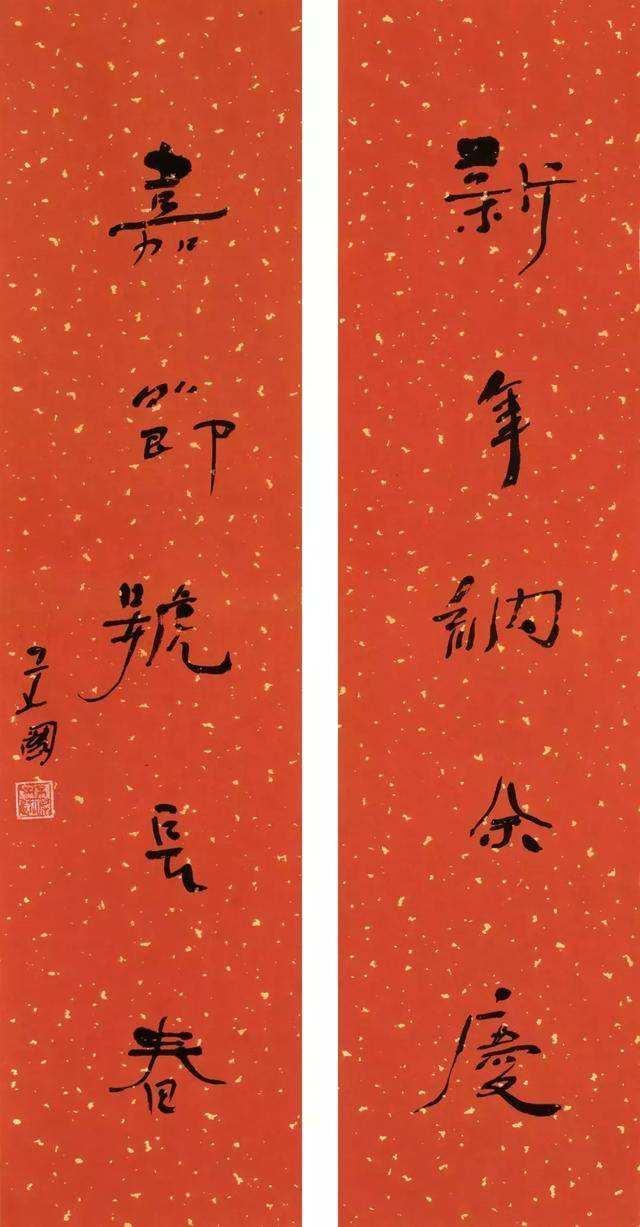 新年納余慶
嘉節號長春